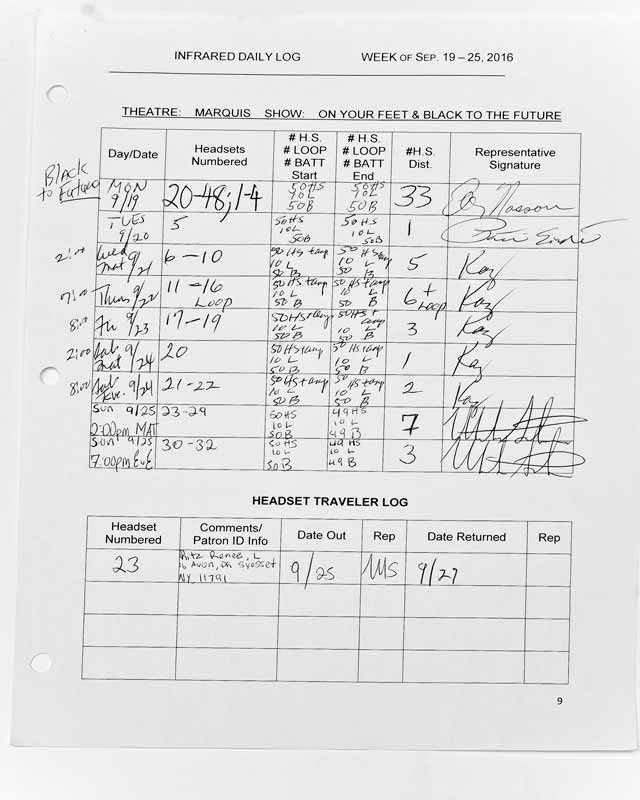 INFRARED DAILY LOG WEEK OF SEP. 19 – 25, 2016
THEATRE: MARQUIS SHOW: ON YOUR FEET & BLACK TO THE FUTURE
Black
to Future
Day/Date
Headsets
Numbered
# H.S.
# LOOP
# BATT
Start
# H.S.
# LOOP
# BATT
End
#H.S.
Dist.
Representative
Signature
MON
9/19
20-48;1-4
50HS
10L
50B
50HS
10L
50B
33
TUES
9/20
5
50HS
10L
50B
50HS
10L
50B
1
2:00
Wed
mat 9/21
6-10
50 HS + amp
10 L
50 B
50 HS amp
10 L
50 B
5
Kay
7:00
Thurs 9/22
11-16
LOOP
50 HS + amp
10 L
50 B
50 HS + amp
10 L
50 B
6 +
LOOP
Kay
8:00
Fri 9/23
17-19
50HS + amp
10 L
50 B
50HS + amp
10 L
50 B
3
Kay
2:00
Sat 9/24
mat
20
50HS + amp
10 L
50 B
50HS + amp
10 L
50 B
1
Kay
8:00
Sat 9/24
Eve.
21-22
50HS + amp
10 L
50 B
50 HS + amp
10 L
50 B
2
Kay
SUN 9/25
2:00pm MAT
23-29
50HS
10L
50B
49HS
10 L
49 B
7
SUN 9/25
7:00pm EVE
30-32
50HS
10L
50B
49HS
10 L
49B
3
HEADSET TRAVELER LOG
Headset
Numbered
Comments/
Patron ID Info
Date Out
Rep
Date Returned
Rep
23
Ritz Renee, L
16 Avon, DR Syosset
NY, 11791
9/25
MS
9/27
9